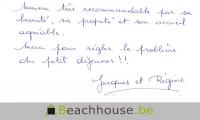 Maison très recommandable par sa
beauté, sa propreté et son accueil
agréable.
Merci pour régler le problème
du petit déjeuner !!
Jacques et Regine
Beachhouse.be